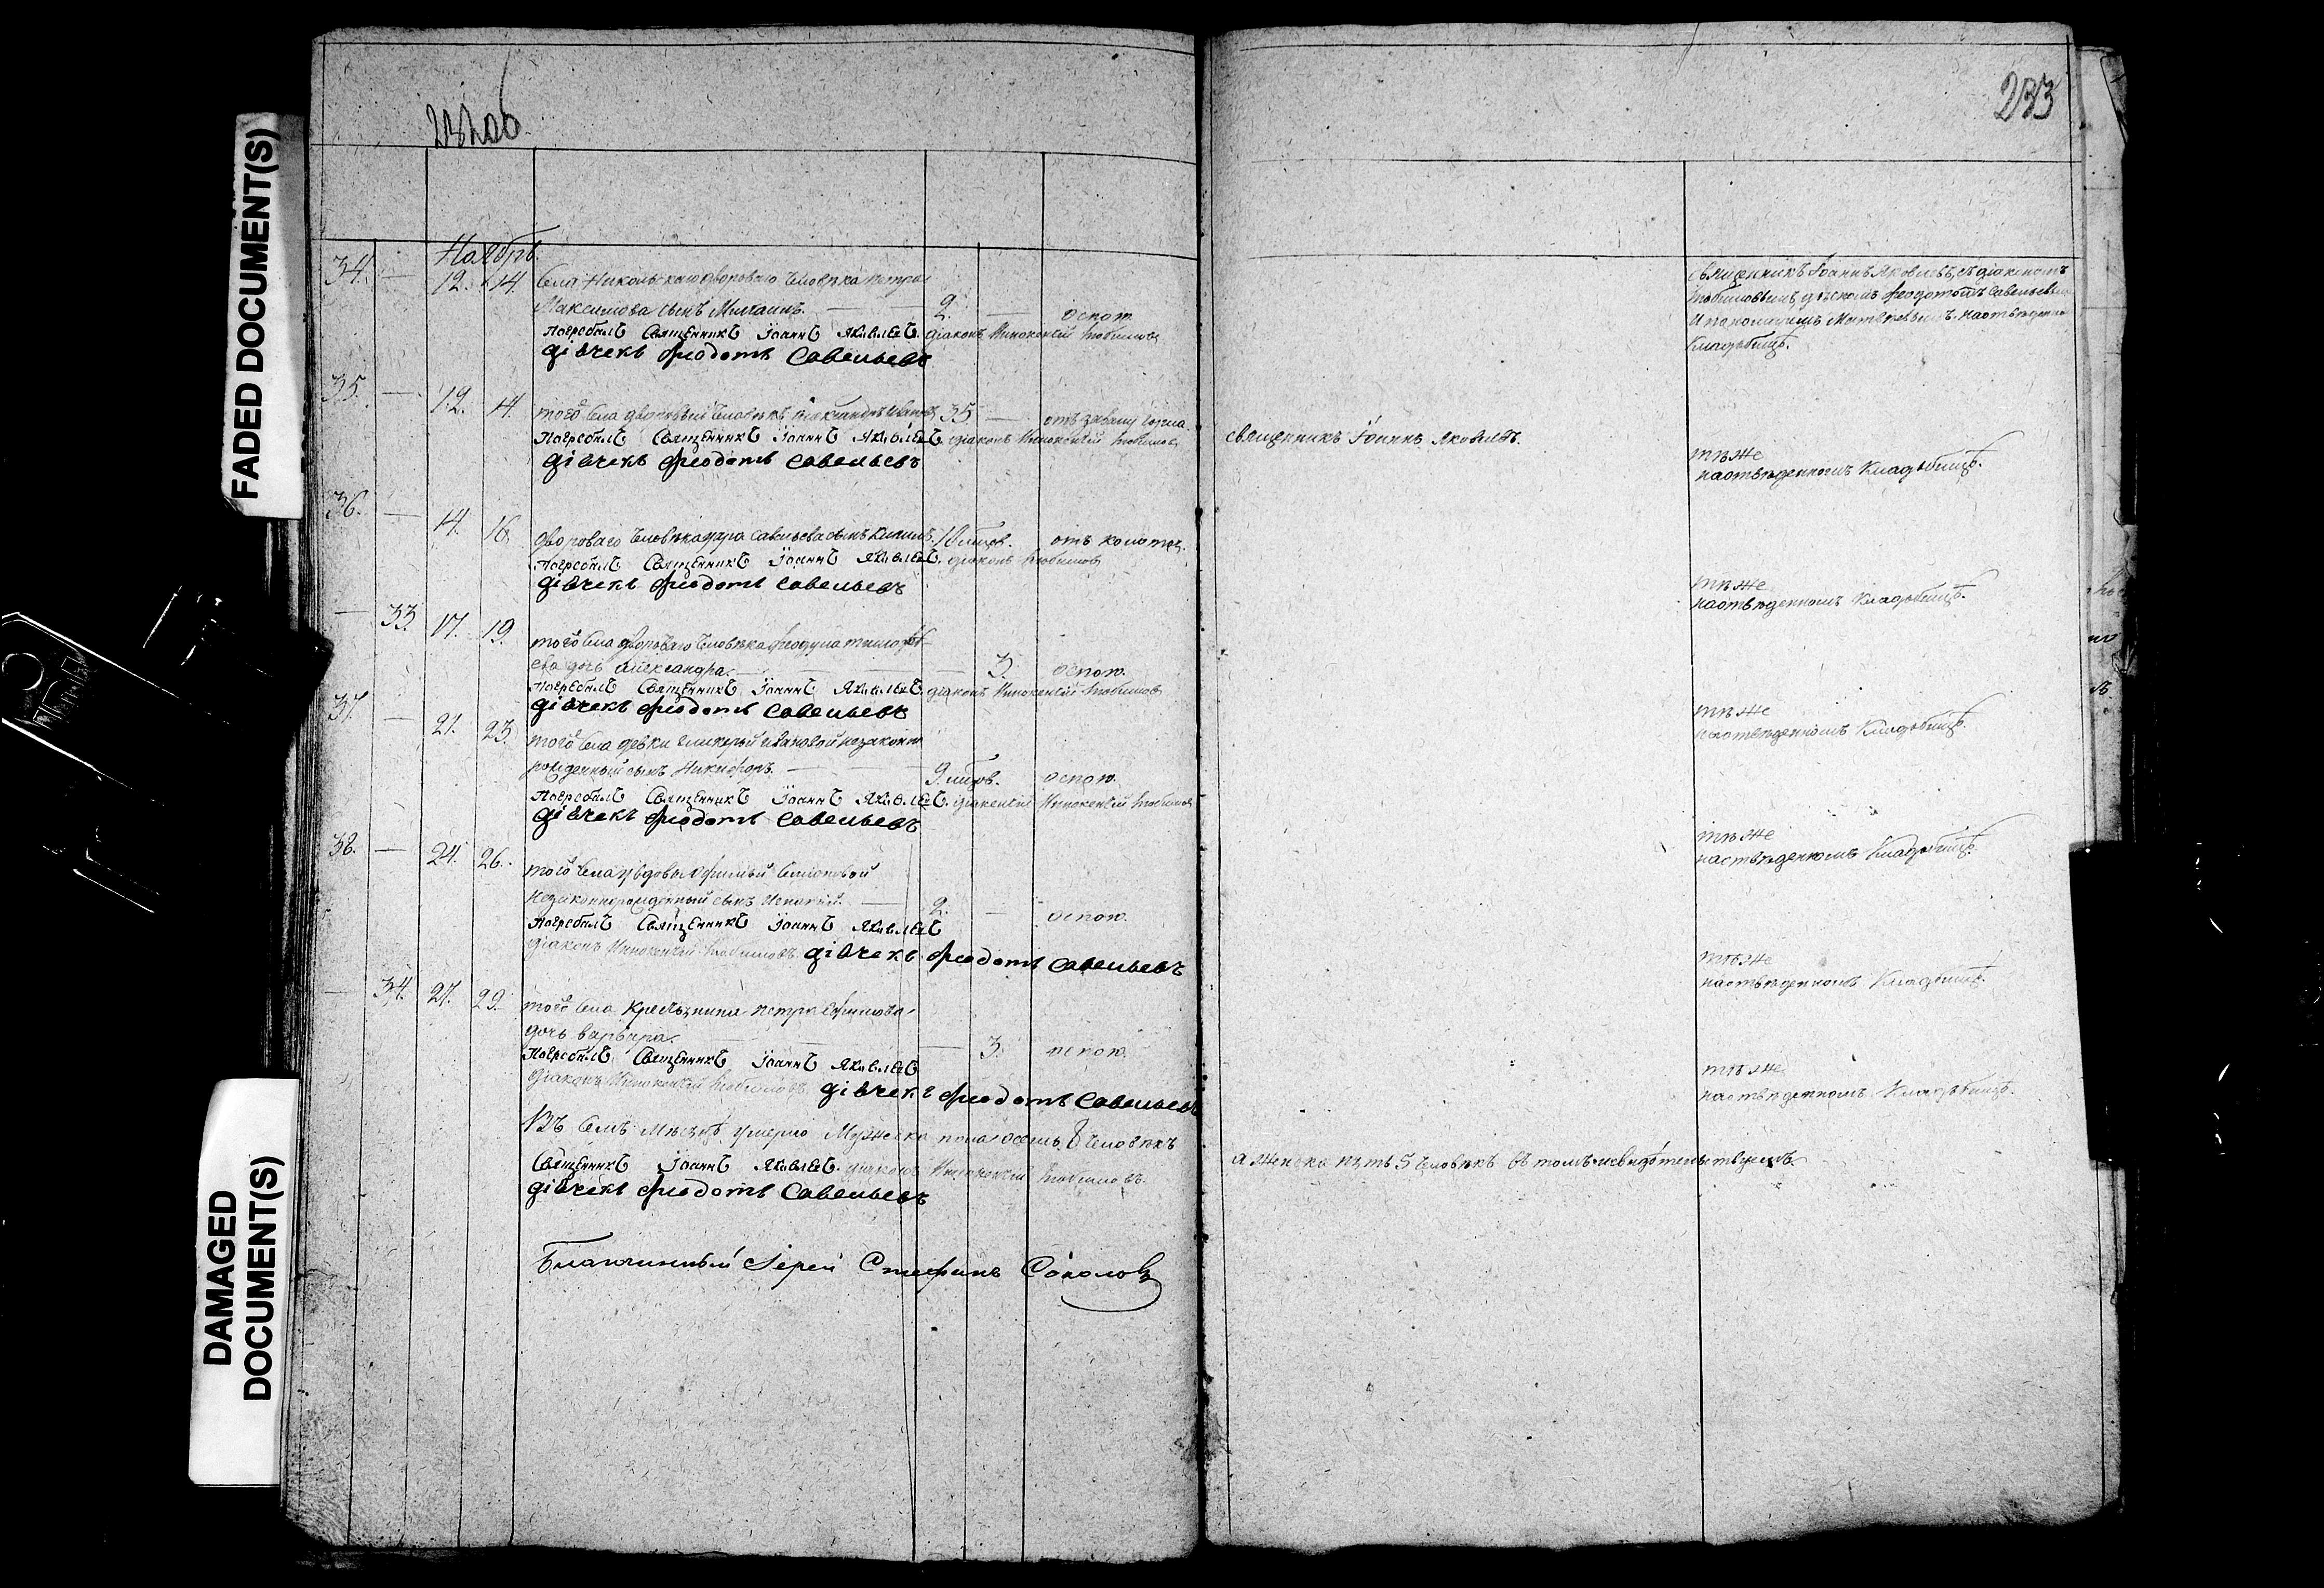 FADED DOCUMENT(S)
DAMAGED
DOCUMENT(S)
232об
Ноябрь.
34. — 12. 14. Села Никольскаго двороваго человѣка Петра
Максимова сынъ Михаилъ. — 2. — оспою
Погребалъ Священникъ Іоаннъ Яковлевъ. діаконъ Иннокентій Любимовъ
дьячекъ Феодотъ Савельевъ
35. — 12. 14. того села дворовый человѣкъ Ивановъ 35 — отъ
Погребалъ Священникъ Іоаннъ Яковлевъ. діаконъ Иннокентій Любимовъ
дьячекъ Феодотъ Савельевъ
36. — 14. 16. двороваго человѣка Савельева сынъ 10 мцов. отъ колотья.
Погребалъ Священникъ Іоаннъ Яковлевъ. діаконъ Любимовъ
дьячекъ Феодотъ Савельевъ
— 33. 17. 19. того села двороваго человѣка Феодула Тимофѣ
ева дочь Александра. — 3. оспою.
Погребалъ Священникъ Іоаннъ Яковлевъ. діаконъ Иннокентій Любимовъ
дьячекъ Феодотъ Савельевъ
37. — 21. 23. того села девки Гликерьи Ивановой незаконно
рожденный сынъ Никифоръ. — 9 мцов. оспою.
Погребалъ Священникъ Іоаннъ Яковлевъ. Иннокентій Любимовъ
дьячекъ Феодотъ Савельевъ
38. — 24. 26. того села вдовы Семеновой
незаконнорожденный сынъ — 2. — оспою.
Погребалъ Священникъ Іоаннъ Яковлевъ
діаконъ Иннокентій Любимовъ. дьячекъ Феодотъ Савельевъ
— 34. 27. 29. того села крестьянина Петра Ефимова
дочь Варвара. — 3. оспою.
Погребалъ Священникъ Іоаннъ Яковлевъ
діаконъ Иннокентій Любимовъ дьячекъ Феодотъ Савельевъ
Въ семъ мѣсяцѣ умерло мужеска пола осемь 8 человѣкъ
Священникъ Іоаннъ Яковлевъ. діаконъ Иннокентій Любимовъ.
дьячекъ Феодотъ Савельевъ
Благочинный Іерей Стефанъ Соколовъ
233
священникъ Іоаннъ Яковлевъ, съ діакономъ
Любимовымъ, дьячкомъ Феодотомъ Савельевымъ
и пономаремъ Матвѣевымъ. на отведенномъ
кладбищѣ.
священникъ Іоаннъ Яковлевъ.
тѣ же
на отведенномъ кладбищѣ.
тѣ же
на отведенномъ кладбищѣ.
тѣ же
на отведенномъ кладбищѣ.
тѣ же
на отведенномъ кладбищѣ.
тѣ же
на отведенномъ кладбищѣ.
тѣ же
на отведенномъ кладбищѣ.
а женска пять 5 человѣкъ въ томъ и свидѣтельствуемъ.